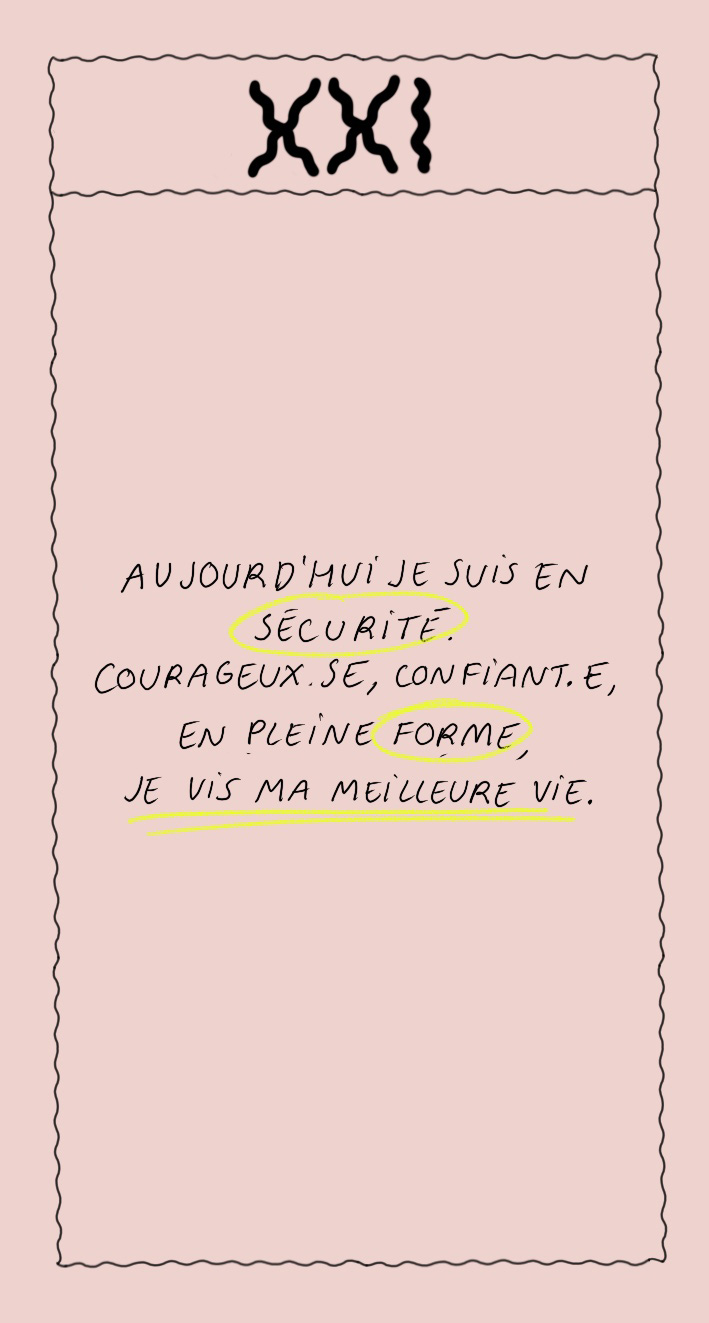 XXI
AUJOURD'HUI JE SUIS EN
SÉCURITÉ.
COURAGEUX.SE, CONFIANT.E,
EN PLEINE FORME,
JE VIS MA MEILLEURE VIE.